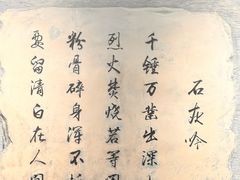 石灰吟
千锤万凿出深
烈火焚烧若等
粉骨碎身浑不
要留清白在人